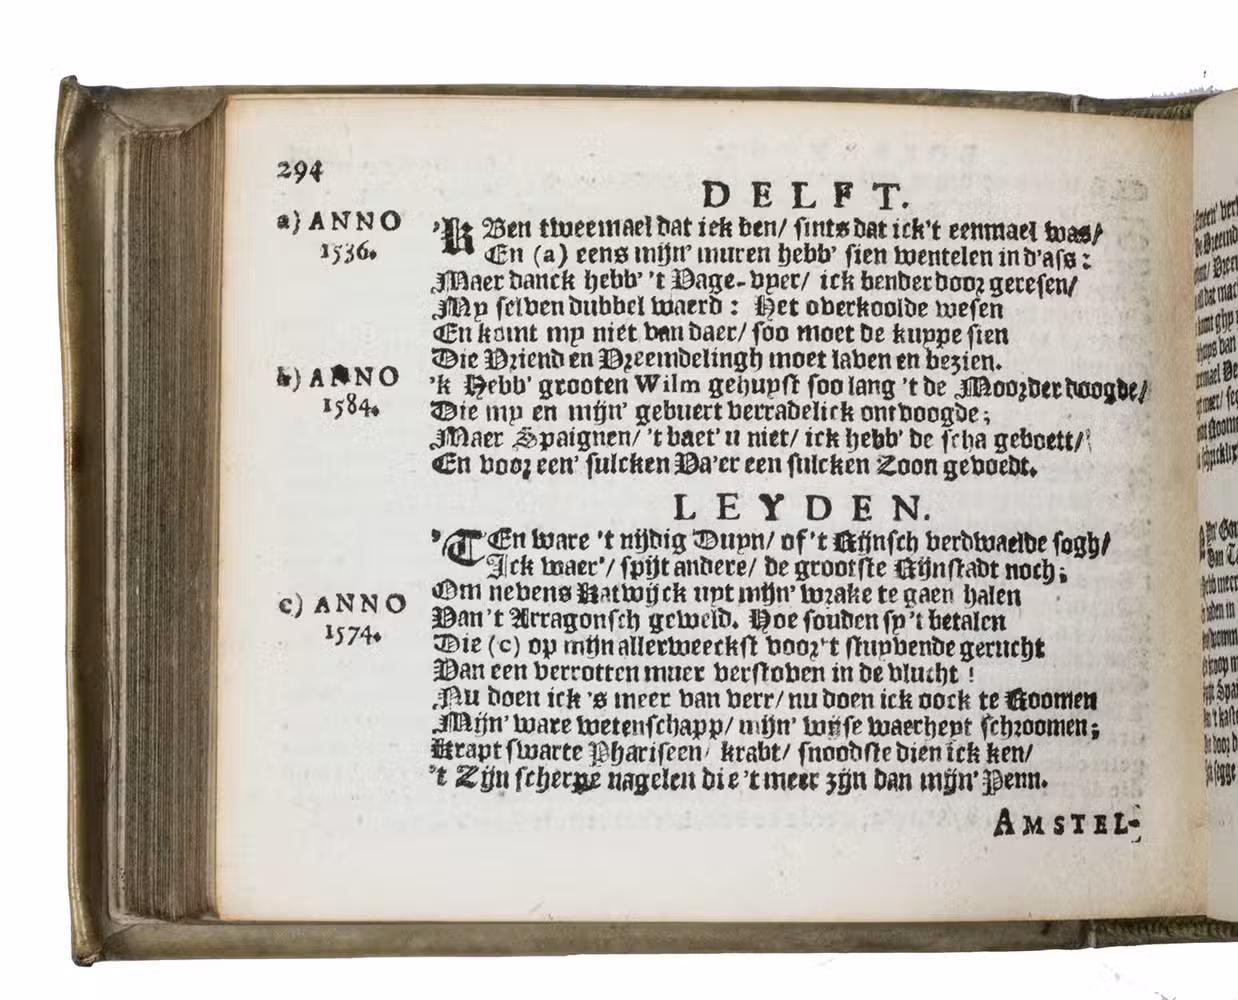 294
DELFT.
a) ANNO
1536.
'K Ben tweemael dat ick ben/ sints dat ick't eenmael was/
En (a) eens mijn' muren hebb' sien wentelen in d'ass:
Maer danck hebb' 't Vage-vyer/ ick ben der door geresen/
My selven dubbel waerd: Het overkoolde wesen
En komt my niet van daer/ soo moet de kuppe sien
Die Vriend en Vreemdelingh moet laven en bezien.
b) ANNO
1584.
'k Hebb' grooten Wilm gehupst soo lang 't de Moorder doogde/
Die my en mijn' gebuert verradelick ontvoogde;
Maer Spaignen/ 't baet' u niet/ ick hebb' de scha geboett/
En voor een' sulcken Va'er een sulcken Zoon gevoedt.
LEYDEN.
'T En ware 't nijdig Duyn/ of 't Rijnsch verdwaelde sogh/
Ick waer'/ spijt andere/ de grootste Rijnstadt noch;
Om nevens Katwijck uyt mijn' wrake te gaen halen
c) ANNO
1574.
Van 't Arragonsch geweld. Hoe souden sy 't betalen
Die (c) op mijn allerweeckst voor 't stuyvende gerucht
Van een verrotten muer verstoven in de vlucht!
Nu doen ick 's meer van verr/ nu doen ick oock te Roomen
Mijn' ware wetenschapp/ mijn' wijse waerheyt schroomen;
Krapt swarte Phariseen/ krabt/ snoodste dien ick ken/
't Zijn scherpe nagelen die 't meer zijn dan mijn' Penn.
AMSTEL-